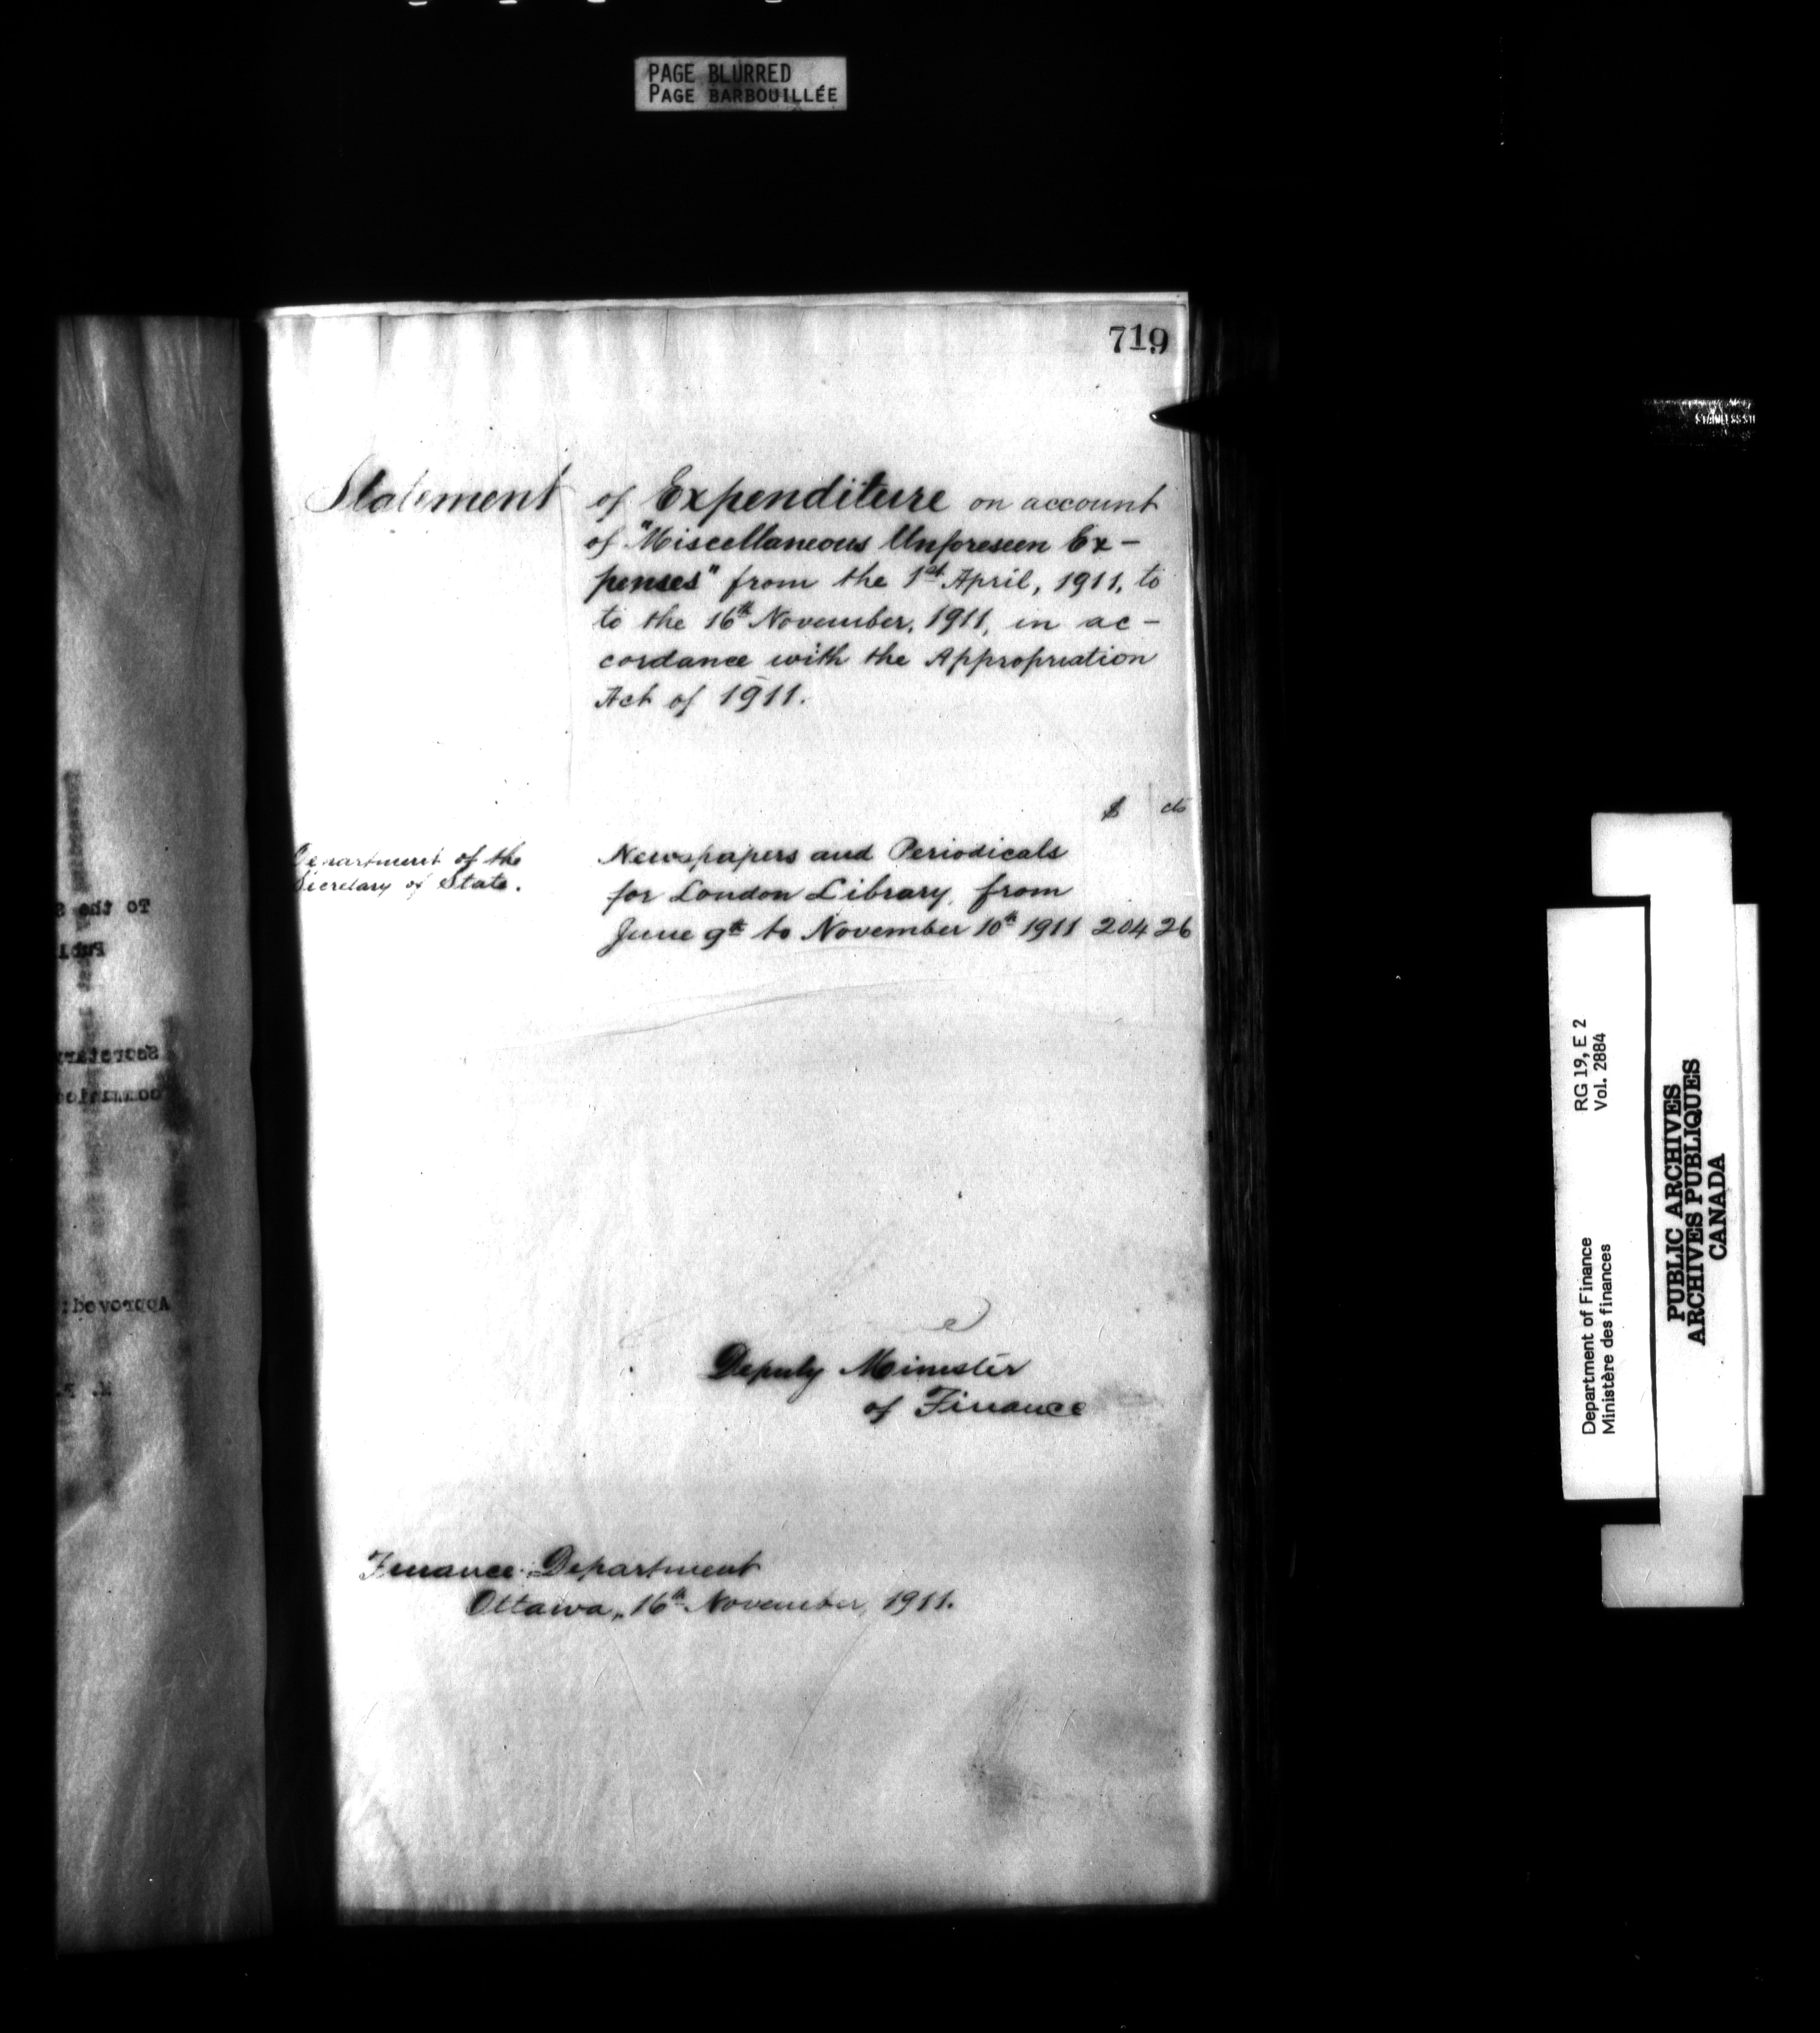 PAGE BLURRED
PAGE BARBOUILLÉE
719
Statement of Expenditure on account
of "Miscellaneous Unforeseen Ex-
penses" from the 1st April, 1911, to
to the 16th November, 1911, in ac-
cordance with the Appropriation
Act of 1911.
$ cts
Department of the
Secretary of State.
Newspapers and Periodicals
for London Library, from
June 9th to November 10th 1911 204 26
Deputy Minister
of Finance
Finance Department
Ottawa, 16th November, 1911.
To the S
Publi
Secretar
Commissio
Approved:
Department of Finance RG 19, E 2
Ministère des finances Vol. 2884
PUBLIC ARCHIVES
ARCHIVES PUBLIQUES
CANADA